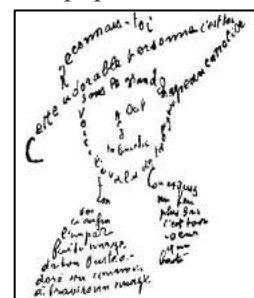 Reconnais-toi
Cette adorable personne c'est toi
sous le grand chapeau canotier
Oeil
la bouche
l'ovale de ta figure
Ton
Cou exquis
Voi
ci enfin
l'impar
faite image
de ton buste a-
doré vu comme
à travers un nuage
un peu
plus bas
c'est ton
coeur
qui
bat